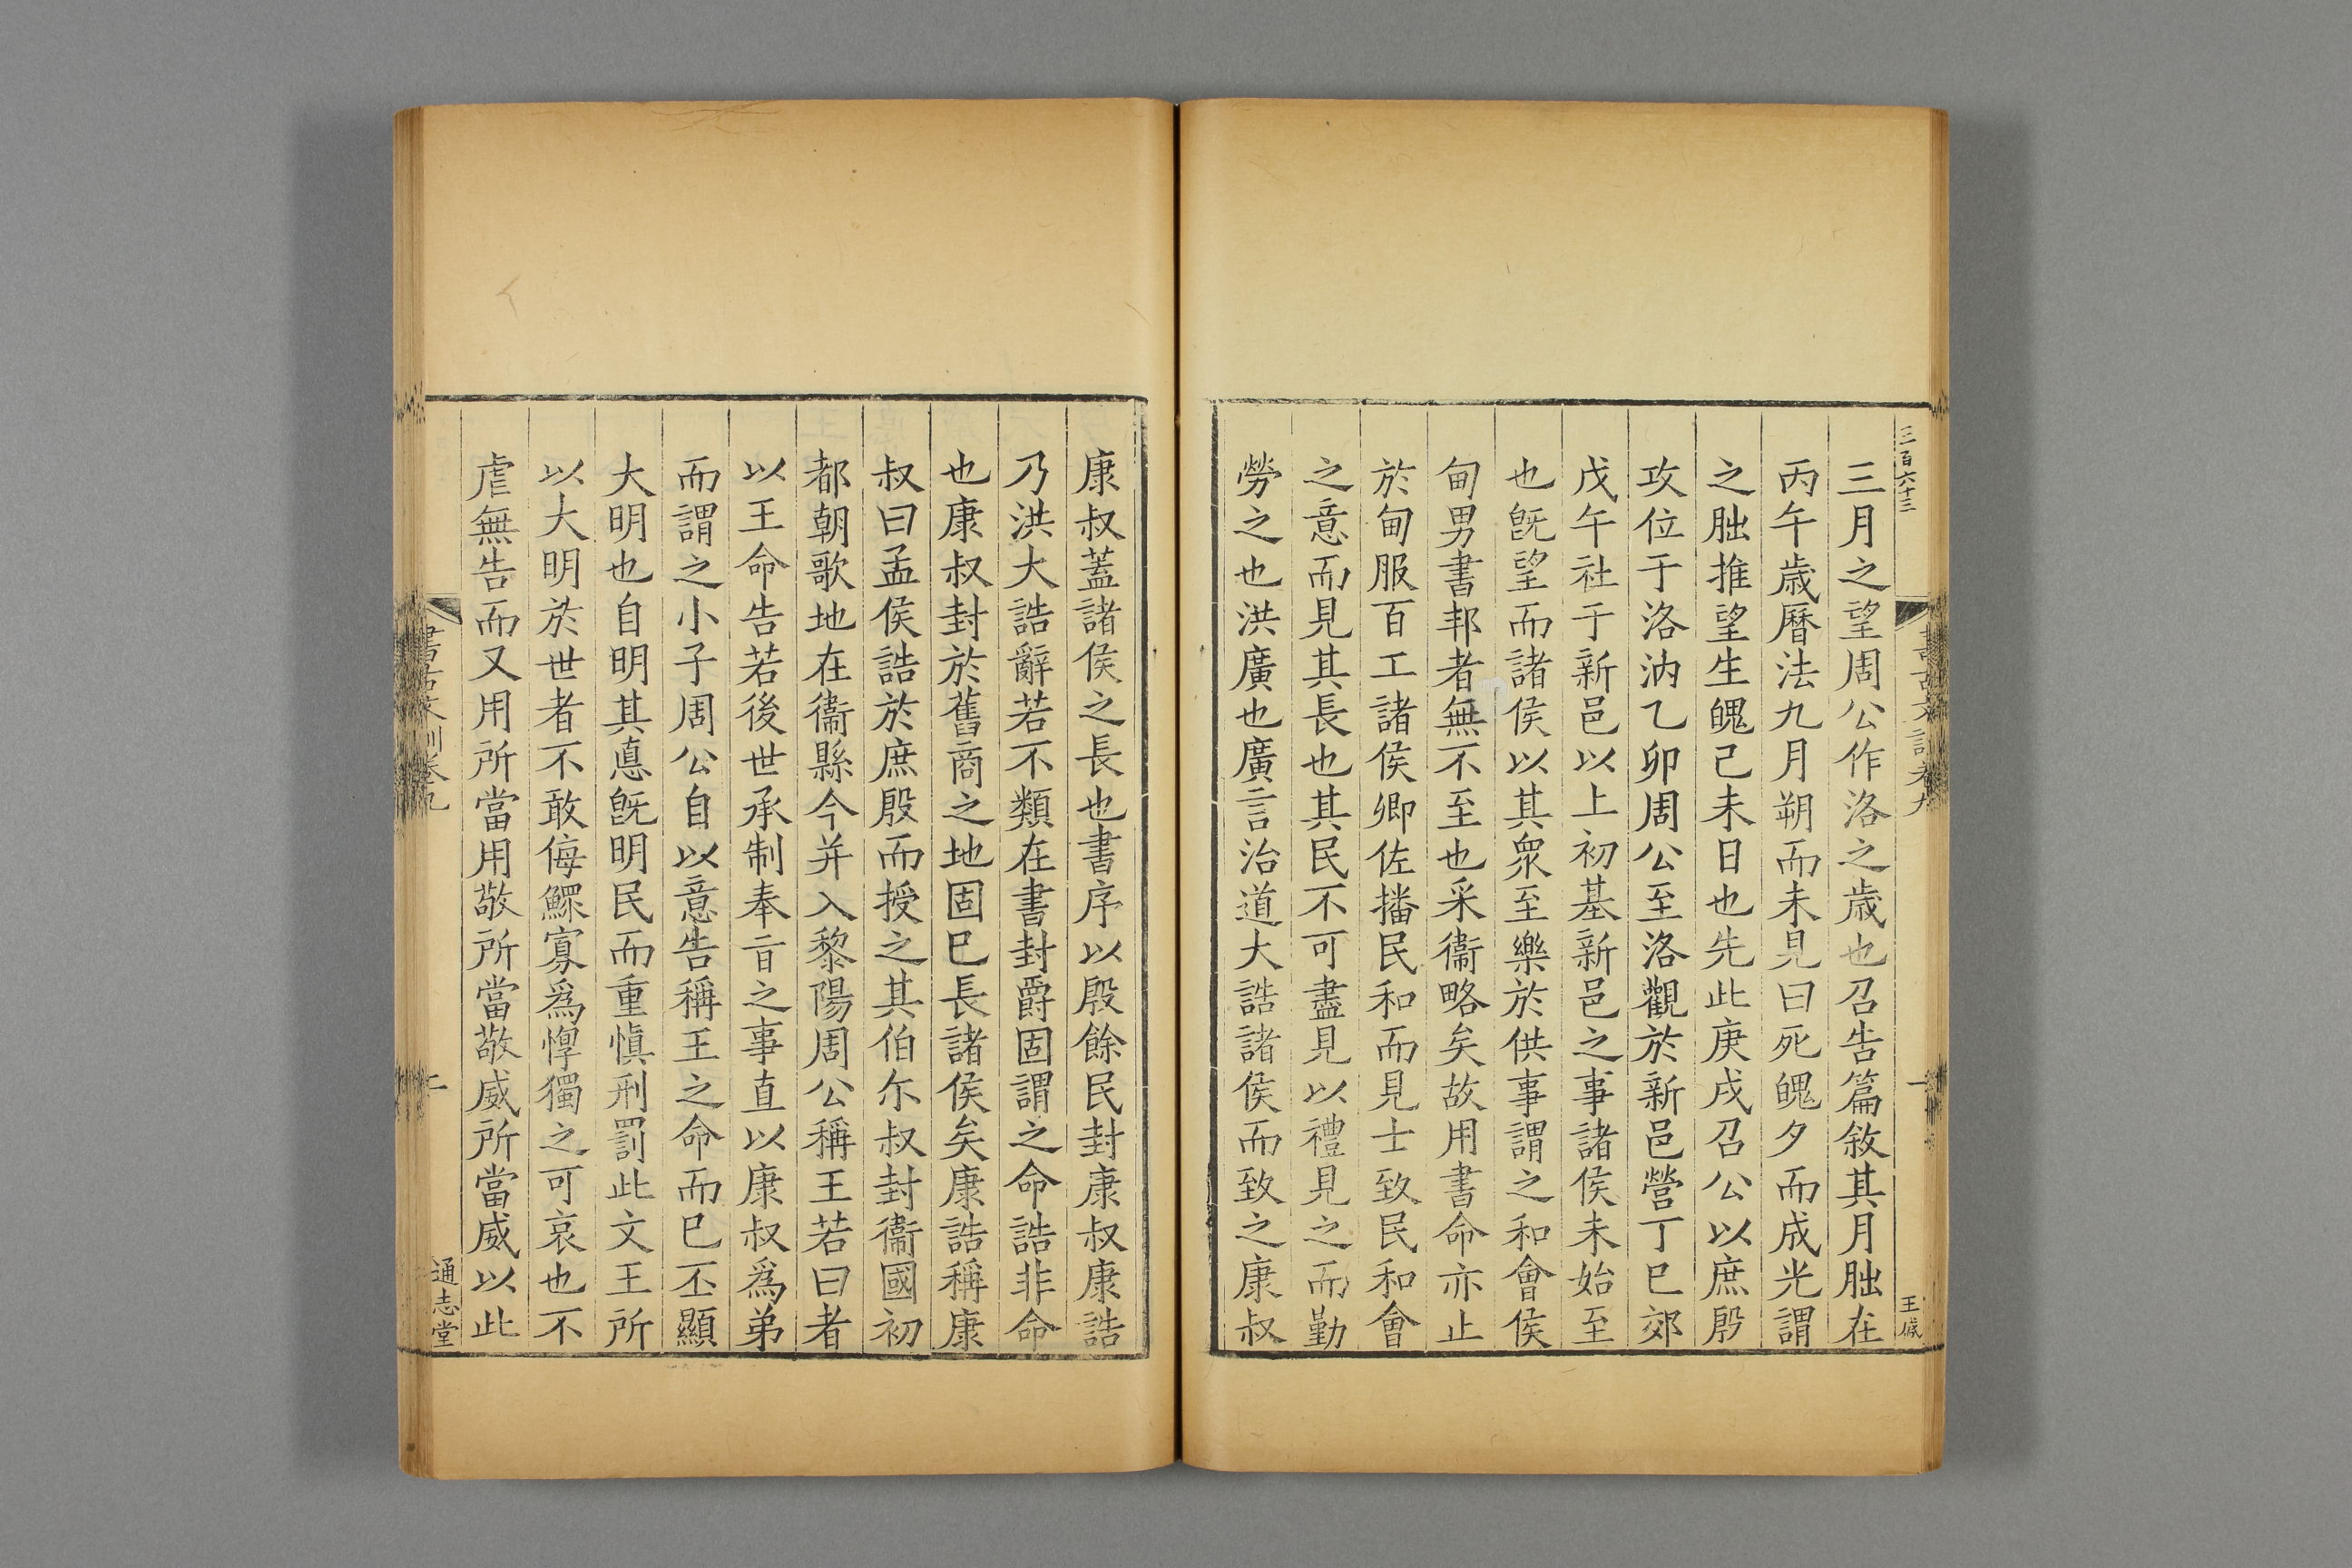 三百六十三
三月之望周公作洛之歲也召告篇敘其月朏在
丙午歲曆法九月朔而未見曰死魄夕而成光謂
之朏推望生魄己未日也先此庚戌召公以庶殷
攻位于洛汭乙卯周公至洛觀於新邑營丁巳郊
戊午社于新邑以上初基新邑之事諸侯未始至
也旣望而諸侯以其衆至樂於供事謂之和會侯
甸男書邦者無不至也采衞略矣故用書命亦止
於甸服百工諸侯卿佐播民和而見士致民和會
之意而見其長也其民不可盡見以禮見之而勤
勞之也洪廣也廣言治道大誥諸侯而致之康叔
一
王
康叔蓋諸侯之長也書序以殷餘民封康叔康誥
乃洪大誥辭若不類在書封爵固謂之命誥非命
也康叔封於舊商之地固巳長諸侯矣康誥稱康
叔曰孟侯誥於庶殷而授之其伯尓叔封衞國初
都朝歌地在衞縣今并入黎陽周公稱王若曰者
以王命告若後世承制奉㫖之事直以康叔爲弟
而謂之小子周公自以意告稱王之命而巳丕顯
大明也自明其悳旣明民而重愼刑罰此文王所
以大明於世者不敢侮鰥寡爲惸獨之可哀也不
虐無告而又用所當用敬所當敬威所當威以此
書古文訓卷九
二
通志堂